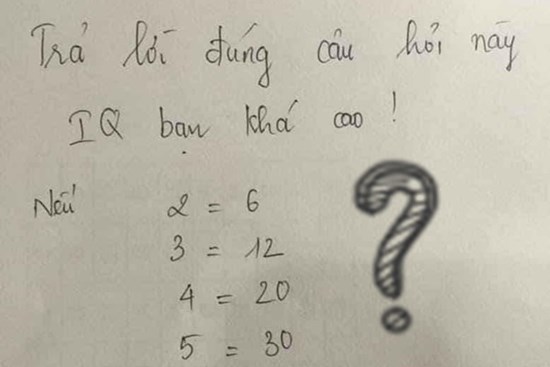 Trả lời đúng câu hỏi này
IQ bạn khá cao !
Nếu 2 = 6
3 = 12
4 = 20
5 = 30
?